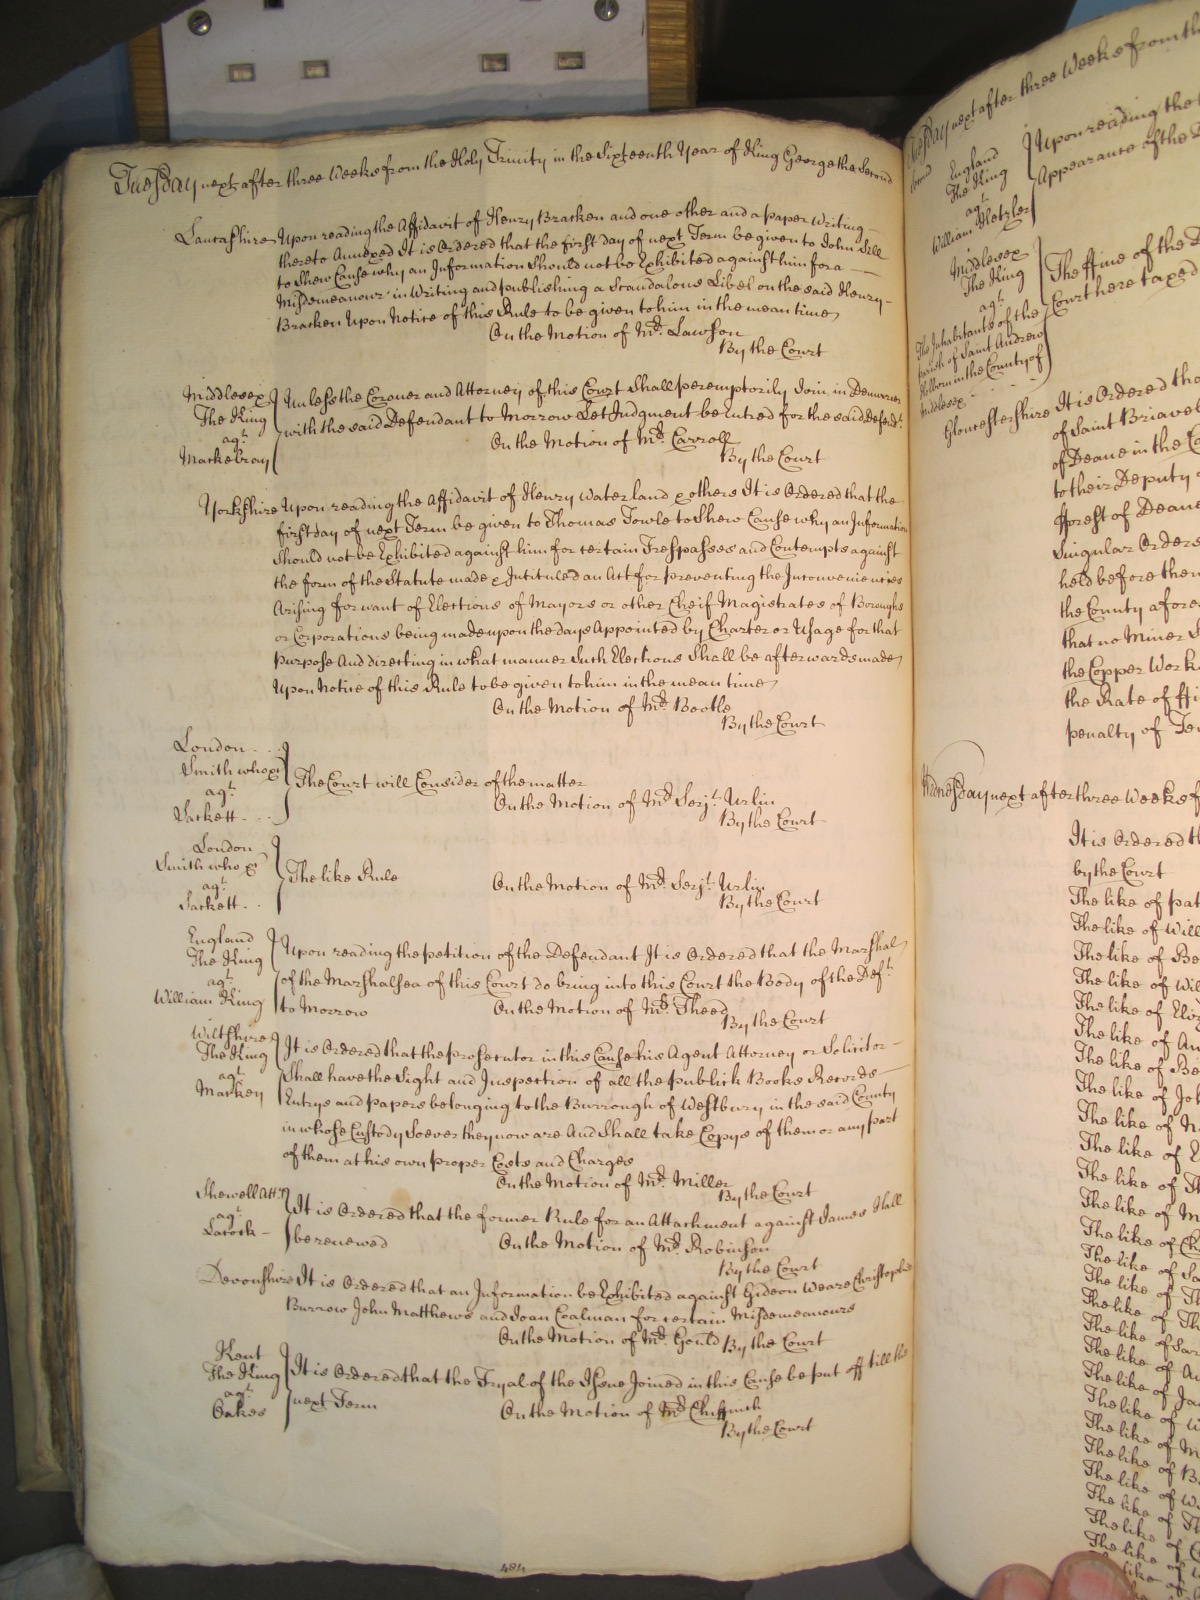 Tuesday next after three Weeks from the Holy Trinity in the Sixteenth Year of King George the Second
Lancashire Upon reading the Affidavit of Henry Bracken and one other and a paper Writing
thereto Annexed It is Ordered that the first day of next Term be given to John Sill
to Shew Cause why an Information Should not be Exhibited against him for a
Misdemeanour in Writing and publishing a Scandalous Libel on the said Henry
Bracken Upon Notice of this Rule to be given to him in the mean time
On the Motion of Mr. Lawson
By the Court
Middlesex
The King
agt.
Mackebray
Unless the Coroner and Attorney of this Court Shall peremptorily Join in Demurrer
with the said Defendant to Morrow Let Judgment be Entred for the said Defendt.
On the Motion of Mr. Carroll
By the Court
Yorkshire Upon reading the Affidavit of Henry Waterland & others It is Ordered that the
first day of next Term be given to Thomas Towle to Shew Cause why an Information
Should not be Exhibited against him for certain Trespasses and Contempts against
the form of the Statute made & Intituled an Act for preventing the Inconveniencies
Arising for want of Elections of Mayors or other Cheif Magistrates of Boroughs
or Corporations being made upon the days Appointed by Charter or Usage for that
purpose And directing in what manner Such Elections Shall be afterwards made
Upon Notice of this Rule to be given to him in the mean time
On the Motion of Mr. Bootle
By the Court
London
Smith who &c
agt.
Sackett
The Court will Consider of the matter
On the Motion of Mr. Serjt. Urlin
By the Court
London
Smith who &c
agt.
Sackett
The like Rule
On the Motion of Mr. Serjt. Urlin
By the Court
England
The King
agt.
William King
Upon reading the petition of the Defendant It is Ordered that the Marshal
of the Marshalsea of this Court do bring into this Court the Body of the Deft.
to Morrow
On the Motion of Mr. Theed
By the Court
Wiltshire
The King
agt.
Markey
It is Ordered that the prosecutor in this Cause his Agent Attorney or Solicitor
Shall have the Sight and Inspection of all the publick Books Records
Entrys and papers belonging to the Burrough of Westbury in the said County
in whose Custody Soever they now are And Shall take Copys of them or any part
of them at his own proper Costs and Charges
On the Motion of Mr. Miller
By the Court
Shewell Attr.
agt.
Lacock
It is Ordered that the former Rule for an Attachment against James Hall
be renewed
On the Motion of Mr. Robinson
By the Court
Devonshire It is Ordered that an Information be Exhibited against Gideon Weare Christopher
Burrow John Matthews and Joan Coalman for certain Misdemeanours
On the Motion of Mr. Gould By the Court
Kent
The King
agt.
Oakes
It is Ordered that the Tryal of the Issue Joined in this Cause be put off till the
next Term
On the Motion of Mr. Chiffinch
By the Court
484
Tuesday next after three Weeks from the
England
The King
agt.
William Hetzler
Upon reading the
Appearance of the
Middlesex
The King
agt.
The Inhabitants of the
parish of Saint Andrew
Holborn in the County of
Middlesex
The ffine of the
Court here taxed
Gloucestershire It is Ordered tha
of Saint Briavel
of Deane in the Co
to their Deputy
fforest of Deane
Singular Orders
held before them
the County afore
that no Miner
the Copper Work
the Rate of ffi
penalty of Te
Wednesday next after three Weeks f
It is Ordered th
by the Court
The like of pat
The like of Will
The like of Be
The like of Wil
The like of Eliz
The like of An
The like of Be
The like of Joh
The like of N
The like of E
The like of Th
The like of M
The like of Ch
The like of Sa
The like of Th
The like of Th
The like of Sar
The like of Au
The like of Ja
The like of W
The like of M
The like of B
The like of W
The like of T
The like of C
The like of
like of